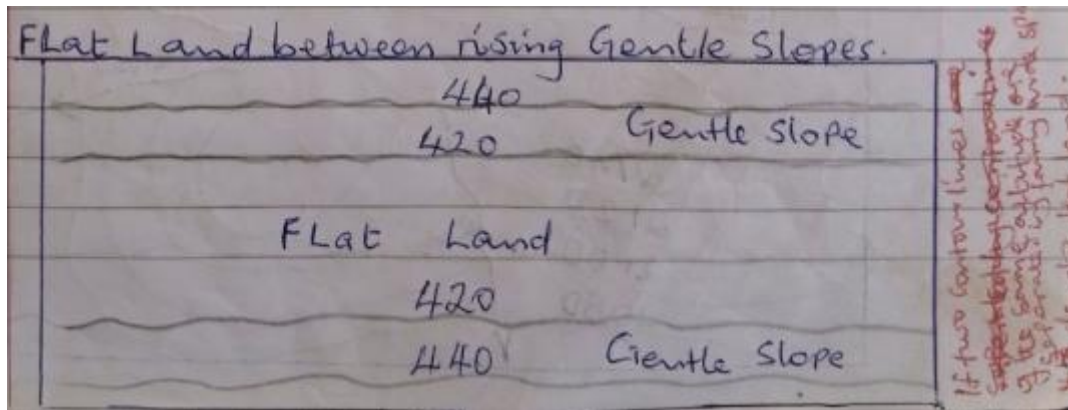 FLat Land between rising Gentle Slopes.
440
420 Gentle Slope
FLat Land
420
440 Gentle Slope
If two contour lines
of the same altitude are